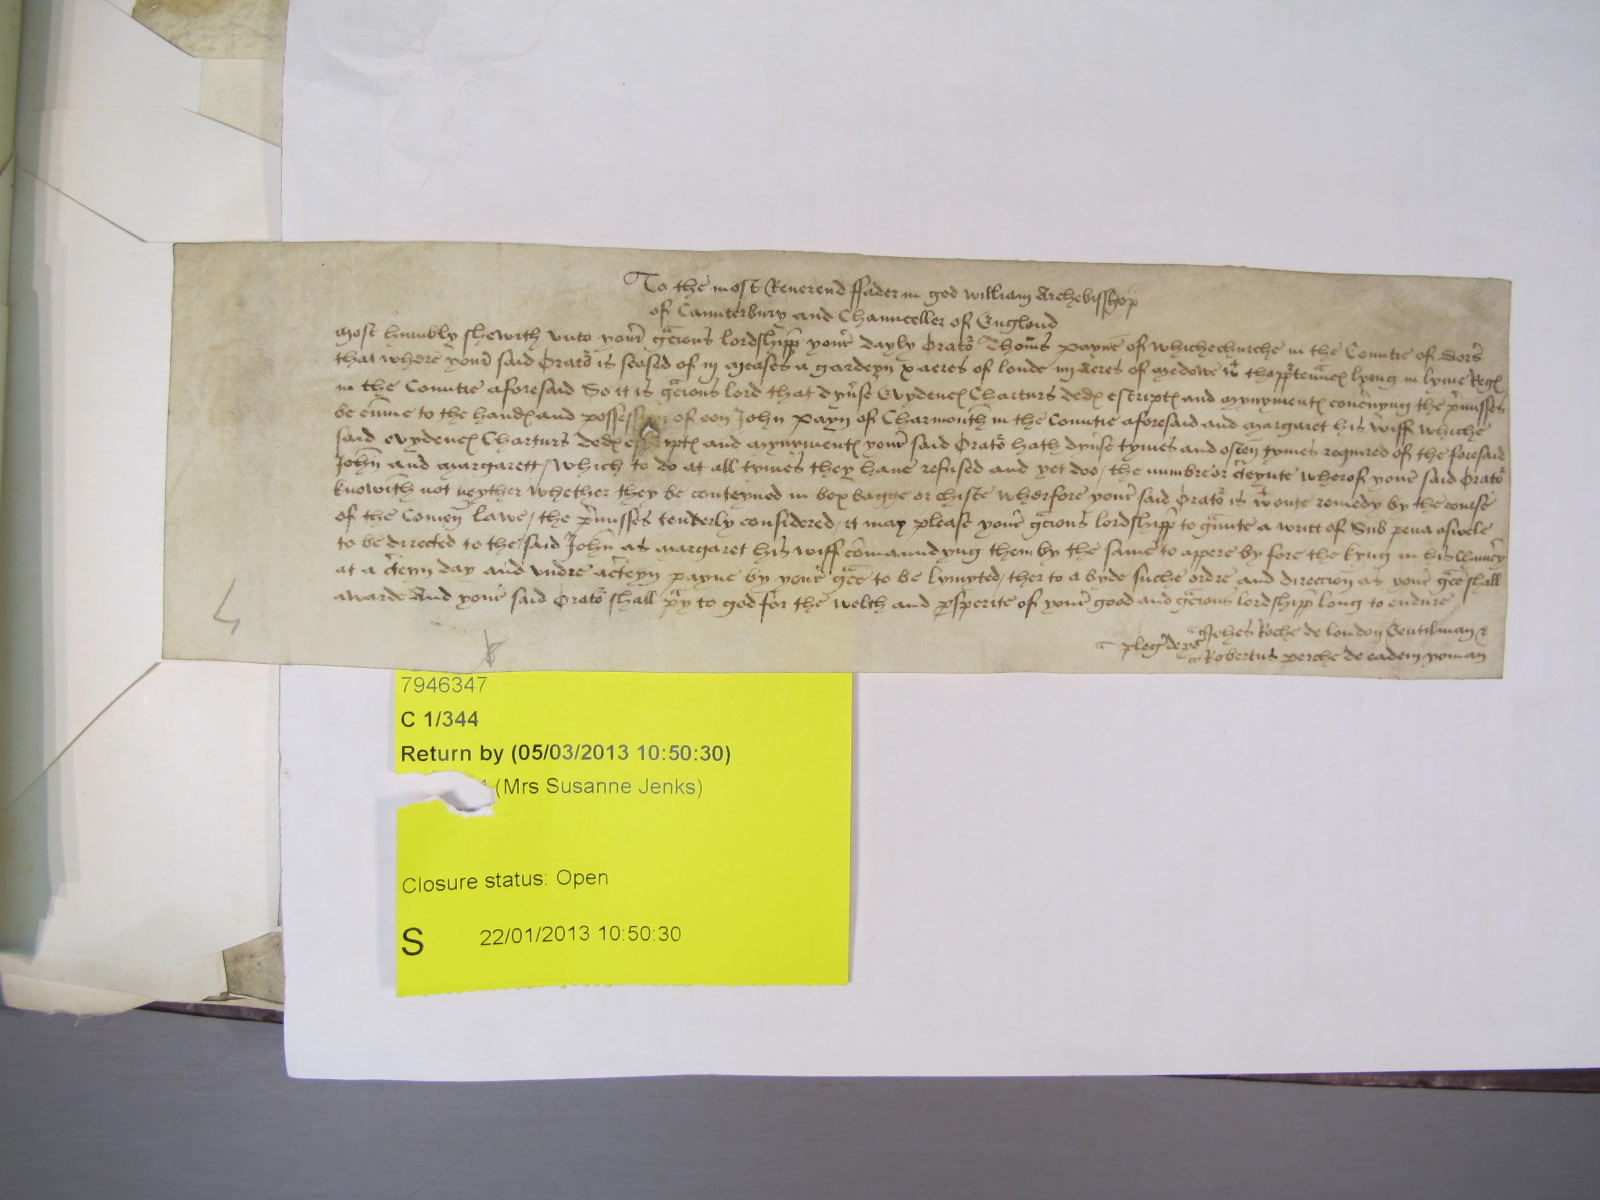 To the most Reuerend ffader in god william Archebisshop
of Caunterbury and Chaunceller of Englond
Most humbly shewith vnto your gracious lordshipp your dayly Orator Thomas Payne of Whichechurche in the Countie of Dors
that where your said Orator is seased of iij meases a gardeyn x acres of londe iiij Acres of medowe wt thapprtenaunces lyeng in lyme Regis
in the Countie aforesaid So it is gracious lord that dyuerse Evydences Charturs dedes escriptes and mynymentes concernyng the premisses
be cume to the handes and possession of oon John Payn of Charmouth in the Countie aforesaid and Margaret his wiff whiche
said evydences Charturs dedes escriptes and mynymentes your said Orator hath dyuerse tymes and often tymes required of the foresaid
John and Margarett / Which to do at all tymes they haue refused and yet doo / the numbre or certeynte wherof your said Orator
knowith not neyther whether they be conteyned in box bagge or chiste wherfore your said Orator is wtoute remedy by the course
of the Comen lawe / the premisses tenderly considered / it may please your gracious lordshipp to graunte a writt of Sub pena aswele
to be directed to the said John as Margaret his wiff comaundyng them by the same to appere by fore the kyng in his Chauncery
at a certeyn day and vndre a certeyn payne by your grace to be lymyted / ther to a byde suche ordre and direccion as your grace shall
awarde And your said Orator shall pray to god for the welth and prosperite of your good and gracious lordshipp long to endure
pleg de pros Johes Roche de london Gentilman &
Robertus perche de eadem yoman
7946347
C 1/344
Return by (05/03/2013 10:50:30)
(Mrs Susanne Jenks)
Closure status: Open
S 22/01/2013 10:50:30